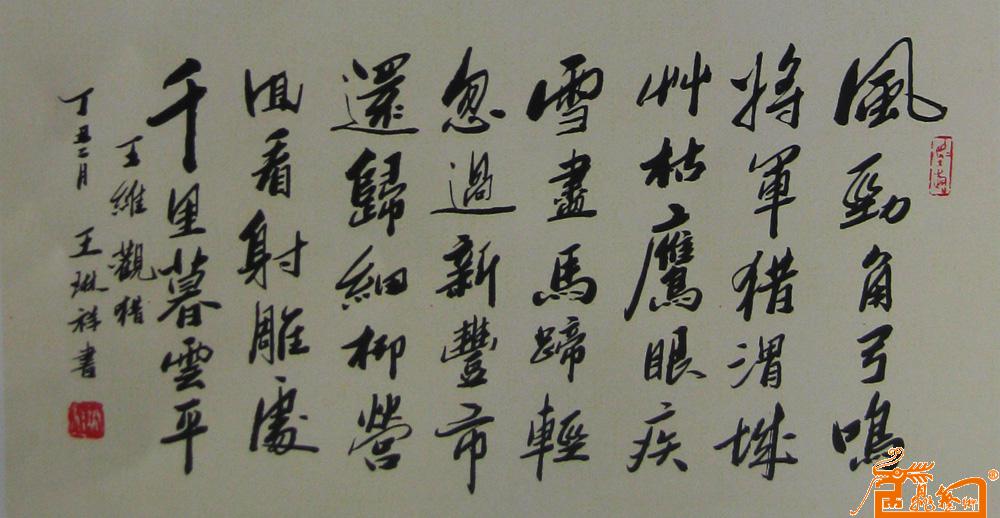 風勁角弓鳴
將軍猎渭城
艸枯鷹眼疾
雪盡馬蹄輕
忽過新豐市
還歸細柳營
回看射雕處
千里暮雲平
王維觀猎
丁丑二月 王琳祥書